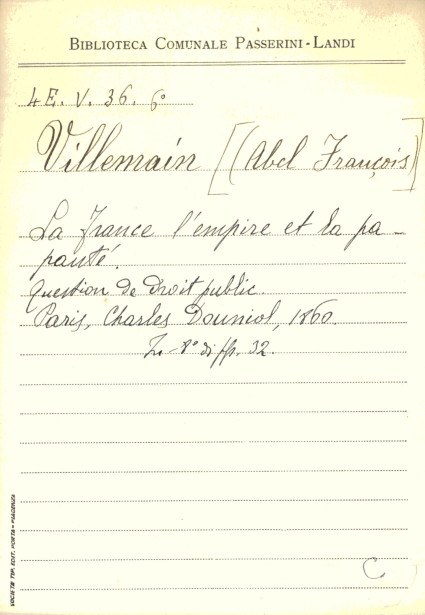 BIBLIOTECA COMUNALE PASSERINI-LANDI
4E. V. 36. 6°
Villemain [(Abel François)]
La France l'empire et la pa-
pauté.
Question de droit public.
Paris, Charles Douniol, 1860.
8° di pp. 32.
C